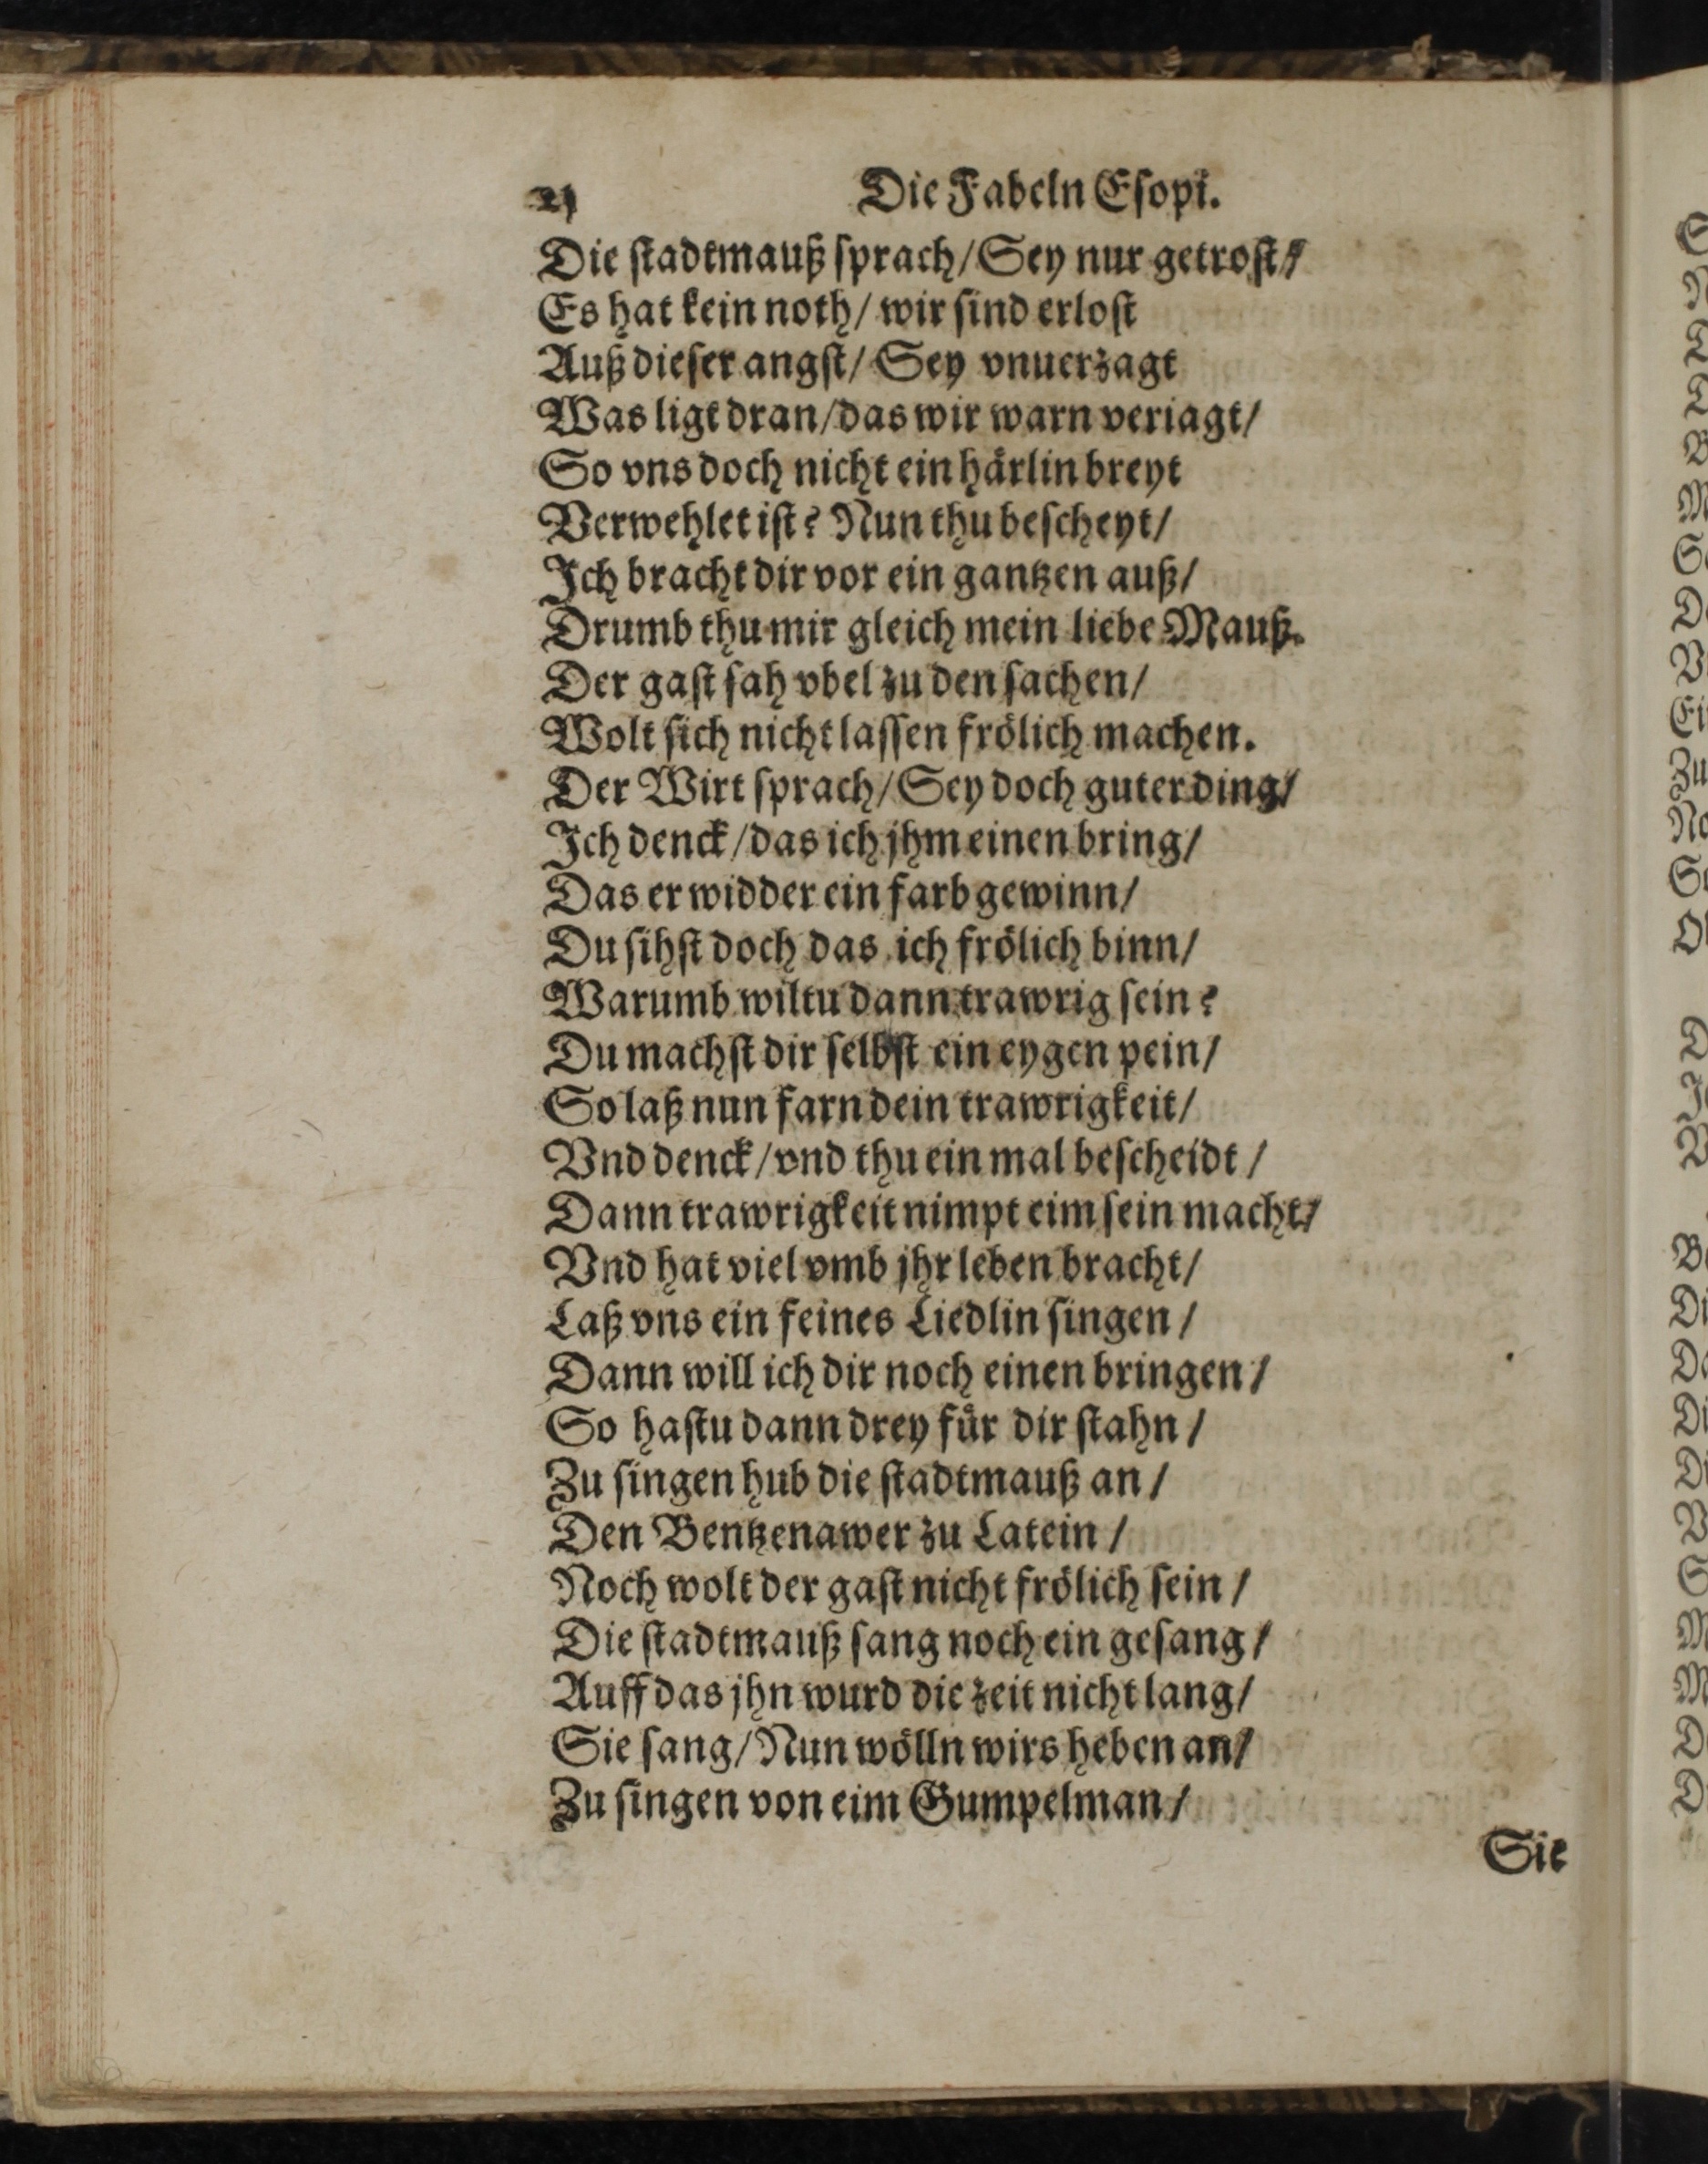 Die Fabeln Esopi.
Die stadtmauß sprach/ Sey nur getrost/
Es hat kein noth/ wir sind erlost
Auß dieser angst/ Sey vnuerzagt
Was ligt dran/ das wir warn veriagt/
So vns doch nicht ein härlin breyt
Verwehlet ist? Nun thu bescheyt/
Ich bracht dir vor ein gantzen auß/
Drumb thu mir gleich mein liebe Mauß.
Der gast sah vbel zu den sachen/
Wolt sich nicht lassen frölich machen.
Der Wirt sprach/ Sey doch guter ding/
Ich denck/ das ich jhm einen bring/
Das er widder ein farb gewinn/
Du sihst doch das ich frölich binn/
Warumb wiltu dann trawrig sein?
Du machst dir selbst ein eygen pein/
So laß nun farn dein trawrigkeit/
Vnd denck/ vnd thu ein mal bescheidt/
Dann trawrigkeit nimpt eim sein macht/
Vnd hat viel vmb jhr leben bracht/
Laß vns ein feines Liedlin singen/
Dann will ich dir noch einen bringen/
So hastu dann drey für dir stahn/
Zu singen hub die stadtmauß an/
Den Bentzenawer zu Latein/
Noch wolt der gast nicht frölich sein/
Die stadtmauß sang noch ein gesang/
Auff das jhn wurd die zeit nicht lang/
Sie sang/ Nun wölln wirs heben an/
Zu singen von eim Gumpelman/
Sie